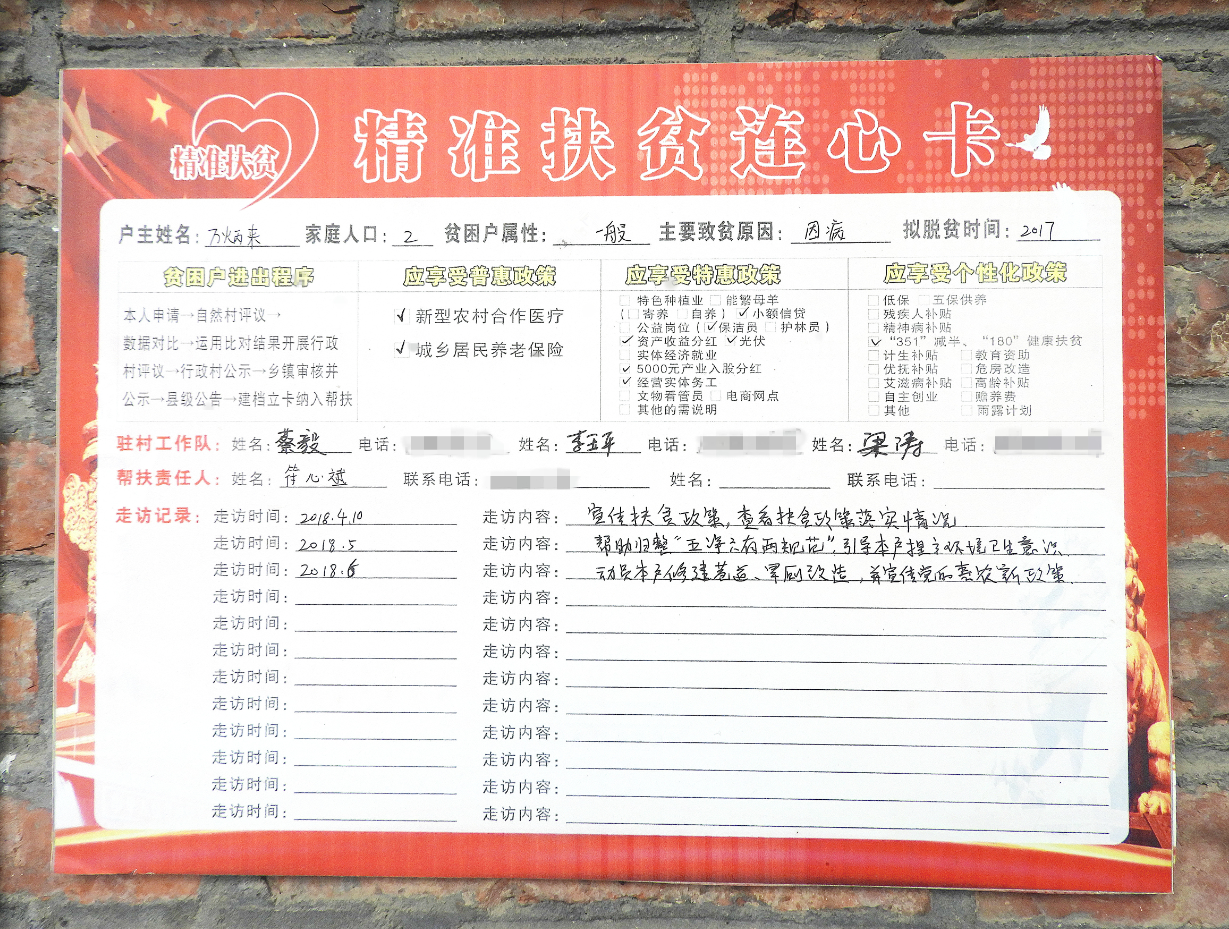 精准扶贫
精准扶贫连心卡
户主姓名：万炳来 家庭人口：2 贫困户属性：一般 主要致贫原因：因病 拟脱贫时间：2017
贫困户进出程序
本人申请→自然村评议→
数据对比→运用比对结果开展行政
村评议→行政村公示→乡镇审核并
公示→县级公告→建档立卡纳入帮扶
应享受普惠政策
✓新型农村合作医疗
✓城乡居民养老保险
应享受特惠政策
□特色种植业 □能繁母羊
(□寄养 □自养) ✓小额信贷
□公益岗位(✓保洁员 □护林员)
✓资产收益分红 ✓光伏
□实体经济就业
✓5000元产业入股分红
✓经营实体务工
□文物看管员 □电商网点
□其他的需说明
应享受个性化政策
□低保 □五保供养
□残疾人补贴
□精神病补贴
✓"351"减半、"180"健康扶贫
□计生补贴 □教育资助
□优抚补贴 □危房改造
□艾滋病补贴 □高龄补贴
□自主创业 □赡养费
□其他 □雨露计划
驻村工作队：姓名：蔡毅 电话： 姓名：李玉平 电话： 姓名：梁涛 电话：
帮扶责任人：姓名：符心斌 联系电话： 姓名： 联系电话：
走访记录：走访时间：2018.4.10 走访内容：宣传扶贫政策，查看扶贫政策落实情况
走访时间：2018.5 走访内容：帮助归整"五净六有两规范"，引导本户提高环境卫生意识
走访时间：2018.6 走访内容：动员本户修建巷道、旱厕改造，并宣传党的惠农新政策.
走访时间： 走访内容：
走访时间： 走访内容：
走访时间： 走访内容：
走访时间： 走访内容：
走访时间： 走访内容：
走访时间： 走访内容：
走访时间： 走访内容：
走访时间： 走访内容：
走访时间： 走访内容：